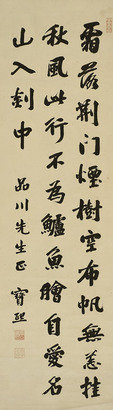 霜落荆门煙樹空布帆無恙挂
秋風此行不為鱸魚膾自愛名
山入剡中
品川先生正 寶熙